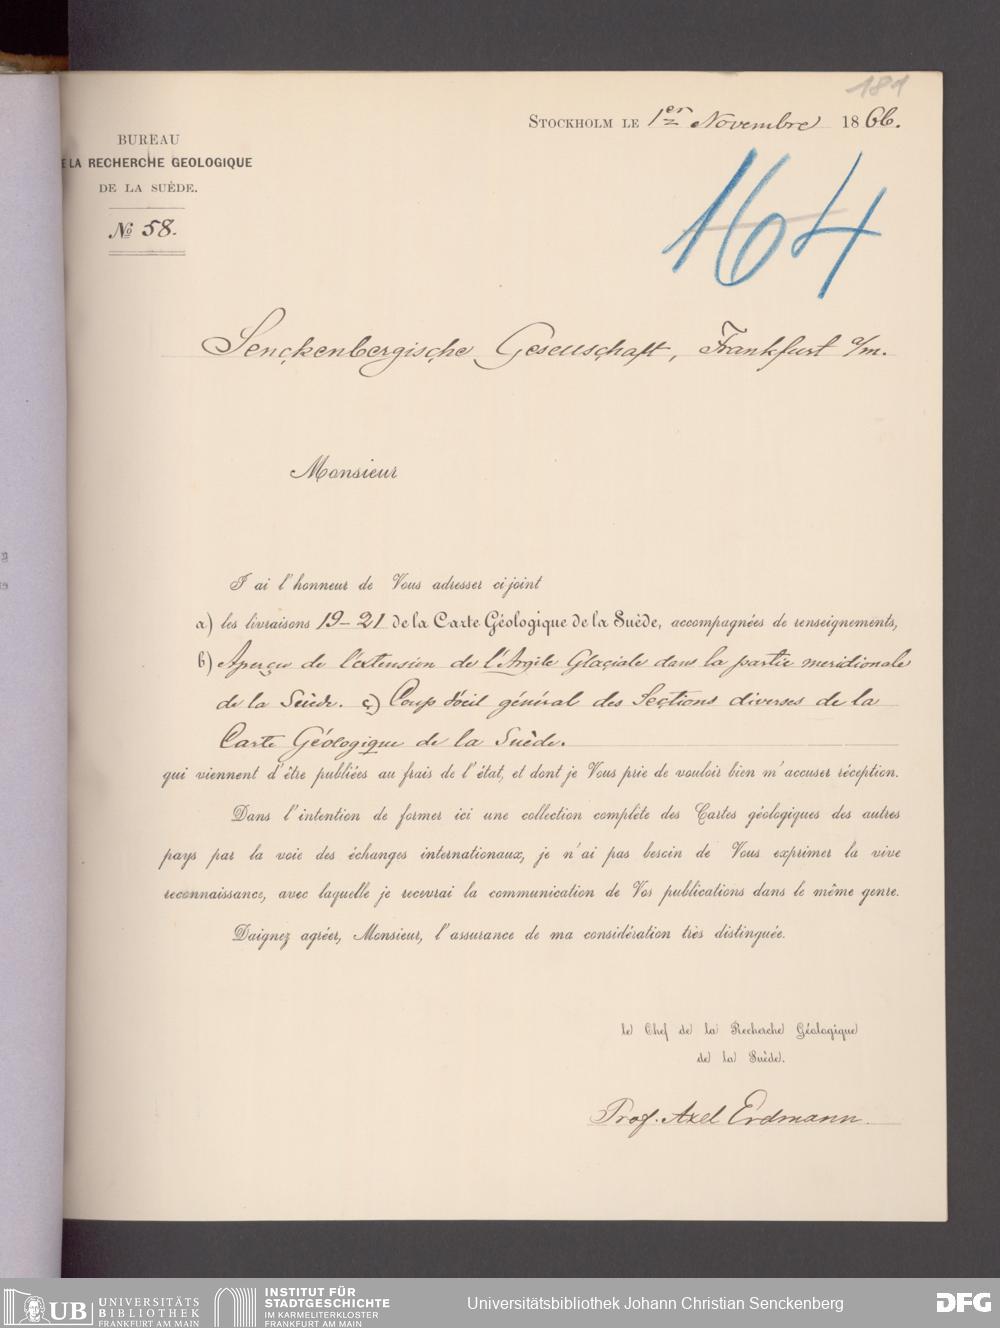 181
STOCKHOLM LE 1er Novembre 1866.
BUREAU
E LA RECHERCHE GEOLOGIQUE
DE LA SUÈDE.
No 58.
164
Senckenbergische Gesellschaft, Frankfurt a/m.
Monsieur
J'ai l'honneur de Vous adresser ci joint
a) les livraisons 19-21 de la Carte Géologique de la Suède, accompagnées de renseignements,
b) Aperçu de l'extension de l'Argile Glaçiale dans la partie meridionale
de la Suède. c) Coup d'oeil général des Sections diverses de la
Carte Géologique de la Suède.
qui viennent d'être publiées au frais de l'état, et dont je Vous prie de vouloir bien m'accuser réception.
Dans l'intention de former ici une collection complète des Cartes géologiques des autres
pays par la voie des échanges internationaux, je n'ai pas besoin de Vous exprimer la vive
reconnaissance, avec laquelle je recevrai la communication de Vos publications dans le même genre.
Daignez agréer, Monsieur, l'assurance de ma considération très distinguée.
le Chef de la Recherche Géologique
de la Suède.
Prof. Axel Erdmann.
UB UNIVERSITÄTS
BIBLIOTHEK
FRANKFURT AM MAIN
INSTITUT FÜR
STADTGESCHICHTE
IM KARMELITERKLOSTER
FRANKFURT AM MAIN
Universitätsbibliothek Johann Christian Senckenberg
DFG